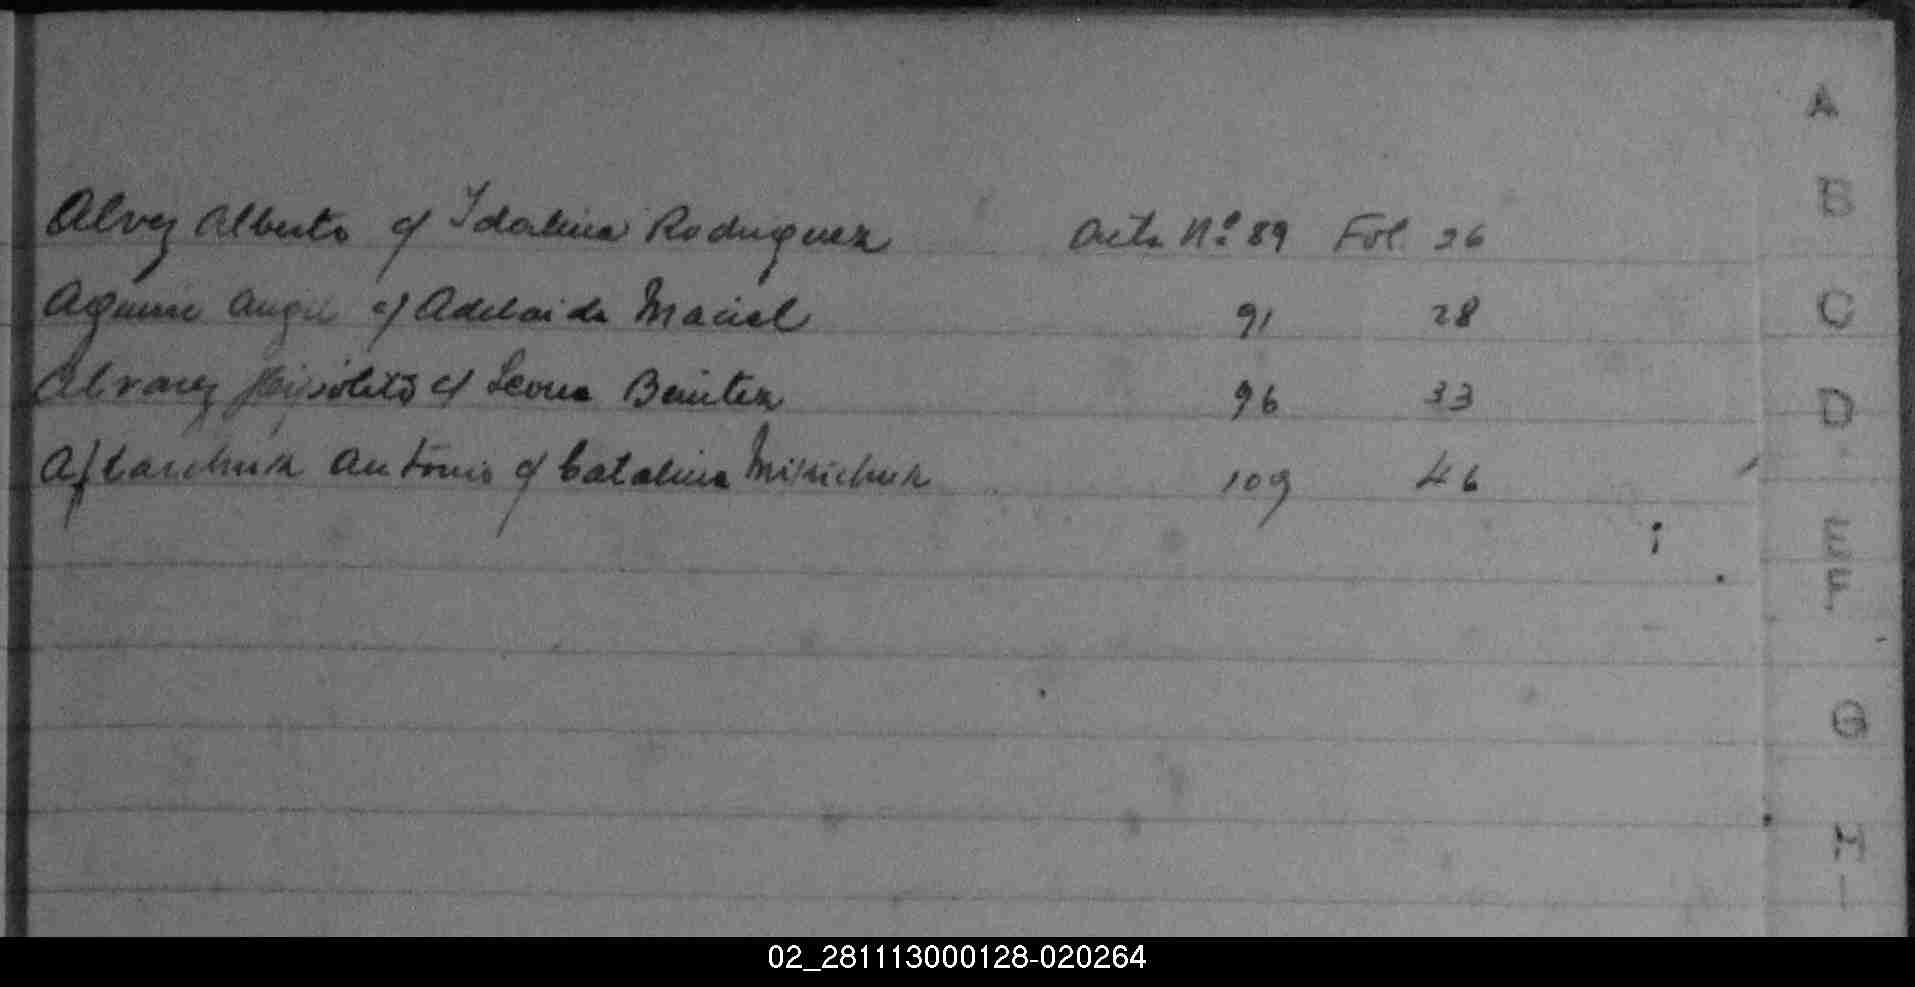 Alvez Alberto c/ Idalina Rodriguez Acta Nº 89 Fol. 26
Aguirre Angel c/ Adelaida Maciel 91 28
Alvarez Hipólito c/ Leona Benitez 96 33
Antonio c/ Catalina 109 46
A
B
C
D
E
F
G
H
I
02_281113000128-020264